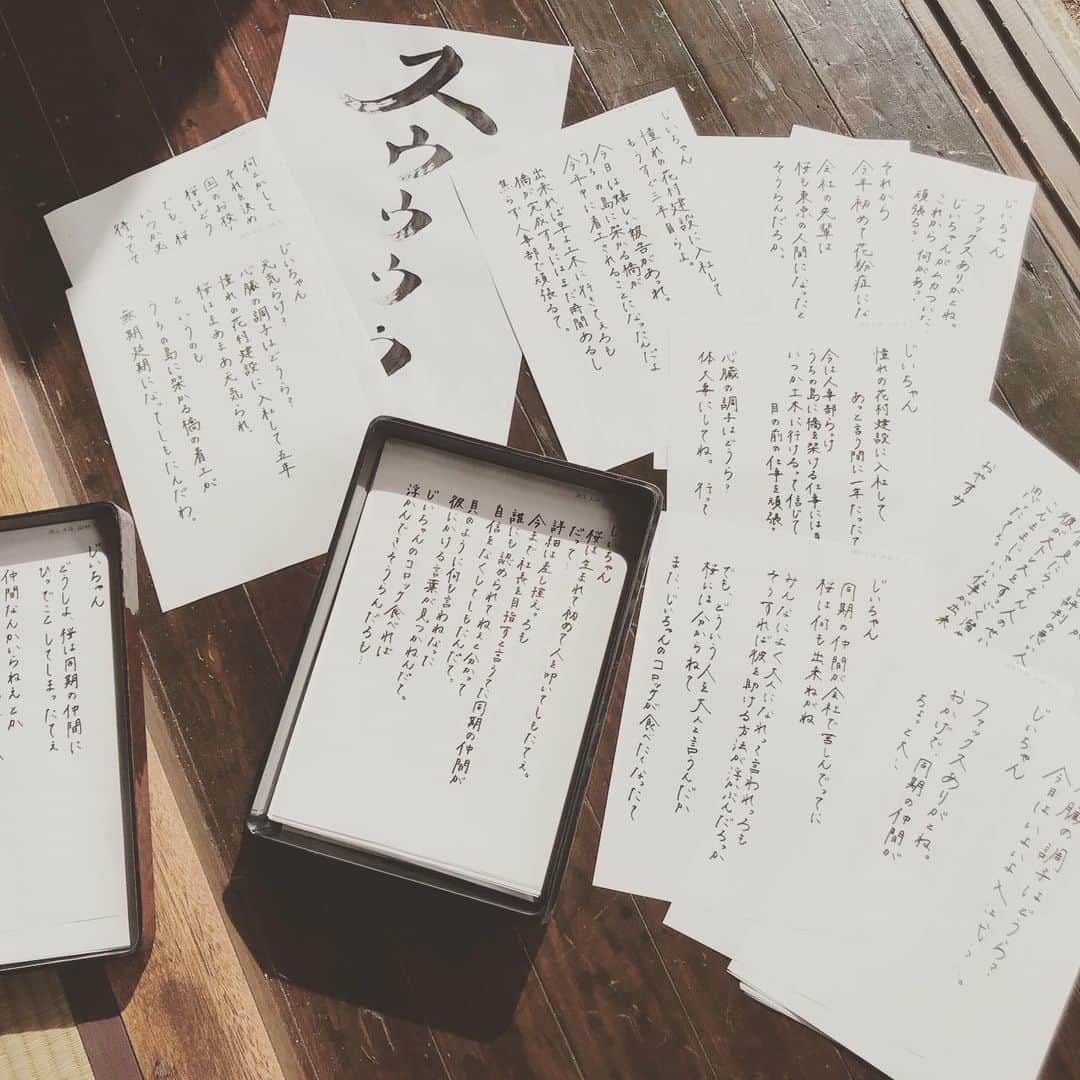 スウウウゥ
じいちゃん
憧れの花村建設に入社して
もうすぐ三年目らよ。
今日は嬉しい報告があって。
うちの島に架かる橋が
今年中に着工されることになったんだよ
出来れば早よ土木に行きてえろも
橋が完成するにはまだ時間あるし
焦らず人事部で頑張るて。
それから
今年初めて花粉症にな
会社の先輩は
桜も東京の人間になったと
そうらんだるか。
じいちゃん
ファックスありがとね。
じいちゃんがムカついた
これから何があっ?
頑張る?
何よかして
それを決め
国のお役
桜はどう
でも、桜
いつか又
待ってて
じいちゃん
元気らけ?
心臓の調子はどうら?
憧れの花村建設に入社して五年
桜はまあまあ元気られ、
というのも
うちの島に架かる橋の着工が
無期延期になってしもたんだわ。
じいちゃん
憧れの花村建設に入社して
あっと言う間に一年たったて
今は人事部らっけ
うちの島に橋を架ける仕事には
いつか土木に行けるって信じて
目の前の仕事を頑張
心臓の調子はどうら?
体大事にしてね。行って
おやすみ
じいちゃん
桜は生まれて初めて人を叩いてしもたてえ。
だて…
詳細は差し控えっろも
今まで社長を目指すと言うてた同期の仲間が
誰にも認められてねえと分かって
自信をなくしてしもたんだて。
貝のように何も言わねなった
彼にかける言葉が見つかねんだて。
じいちゃんのコロッケ食べれば
浮かんできそうらんだろも…
じいちゃん
同期の仲間が会社で苦しんでってに
桜は何も出来ねがね
みんなによく大人になれって言われっろも
そうすれば彼を助ける方法が浮かぶんだろっか
でも、どういう人を大人と言うんだか
桜には分からねて
また、じいちゃんのコロッケが食べたくなったて
じいちゃん
どうしよ、桜は同期の仲間に
ひっでことしてしまったてえ
仲間なんかいらねえとか
臓の調子はどうら?
今日はいよいよ入
じいちゃん
ファックスありがとね。
おかげで、同期の仲間が
ちょっと大